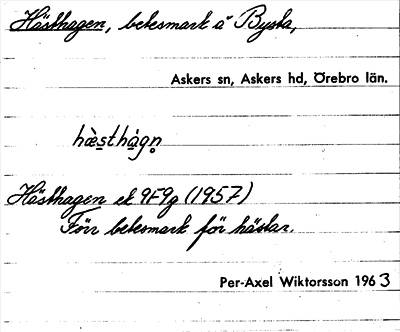 Hästhagen, betesmark å Bysta,
Askers sn, Askers hd, Örebro län.
hæ̀sthàgn̥
Hästhagen ek 9F9g (1957)
Förr betesmark för hästar.
Per-Axel Wiktorsson 1963